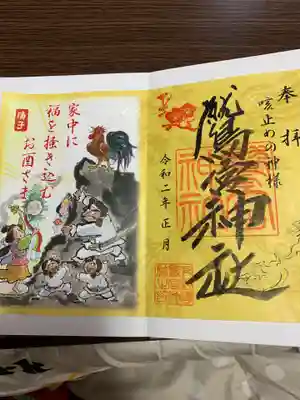 奉拝
咳止めの神様
鷲宮神社
令和二年 正月
庚子
家中に
福を掻き込む
お酉さま